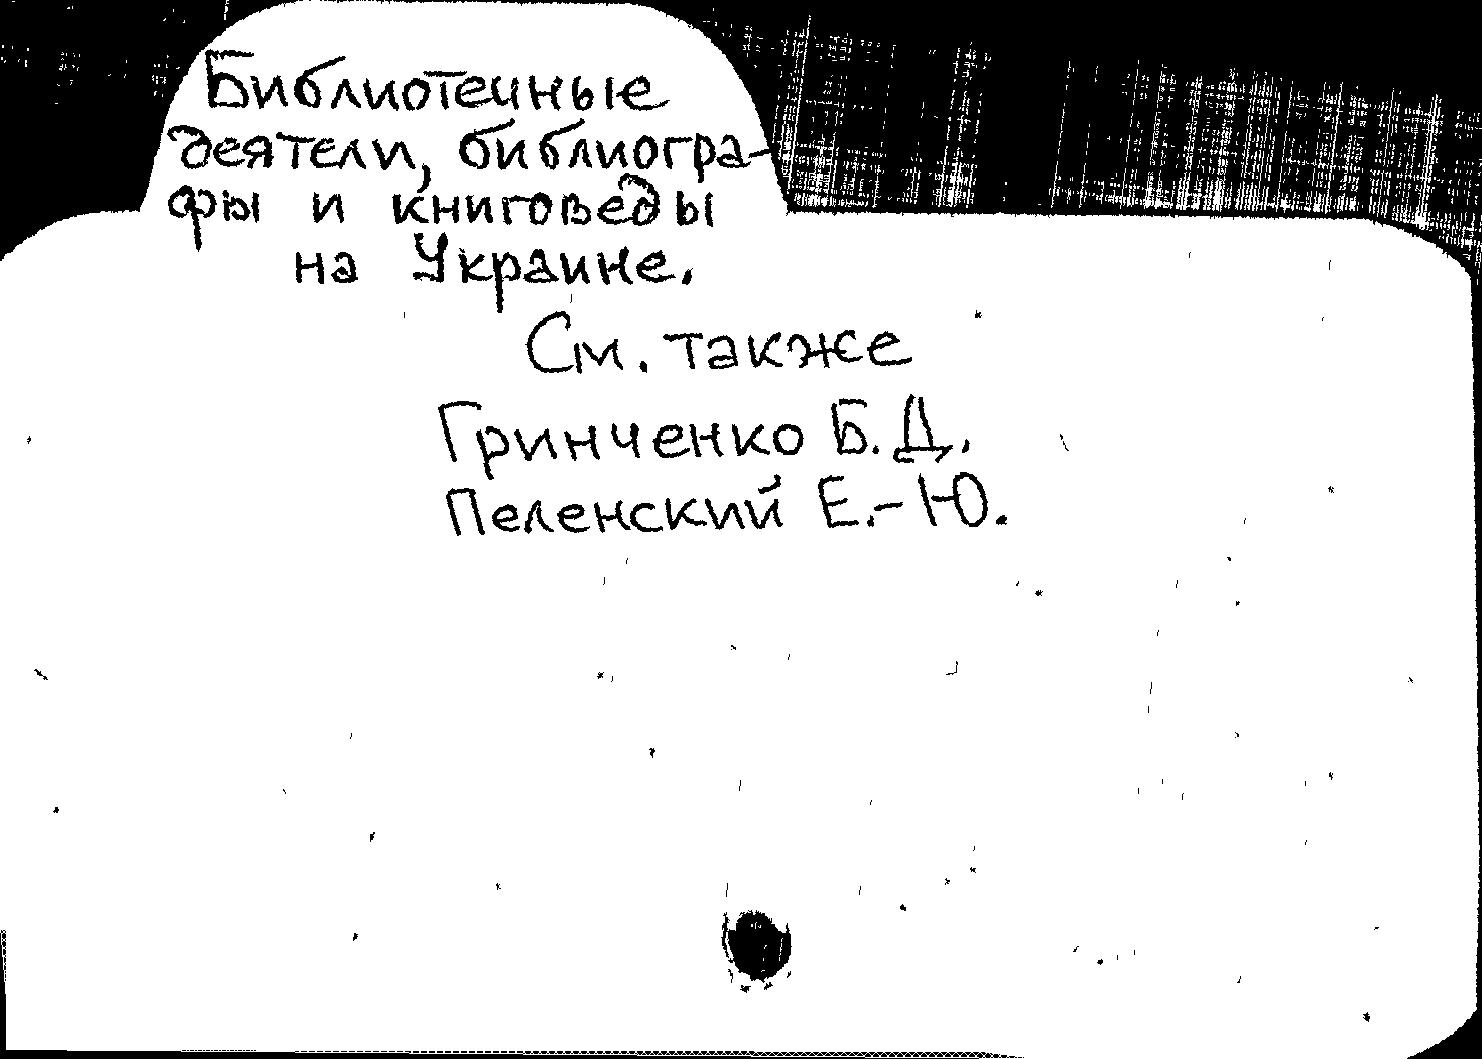 Библиотечные
деятели, библиогра-
фы и книговеды
на Украине.
См. также
Гринченко Б.Д.
Пеленский Е.-Ю.